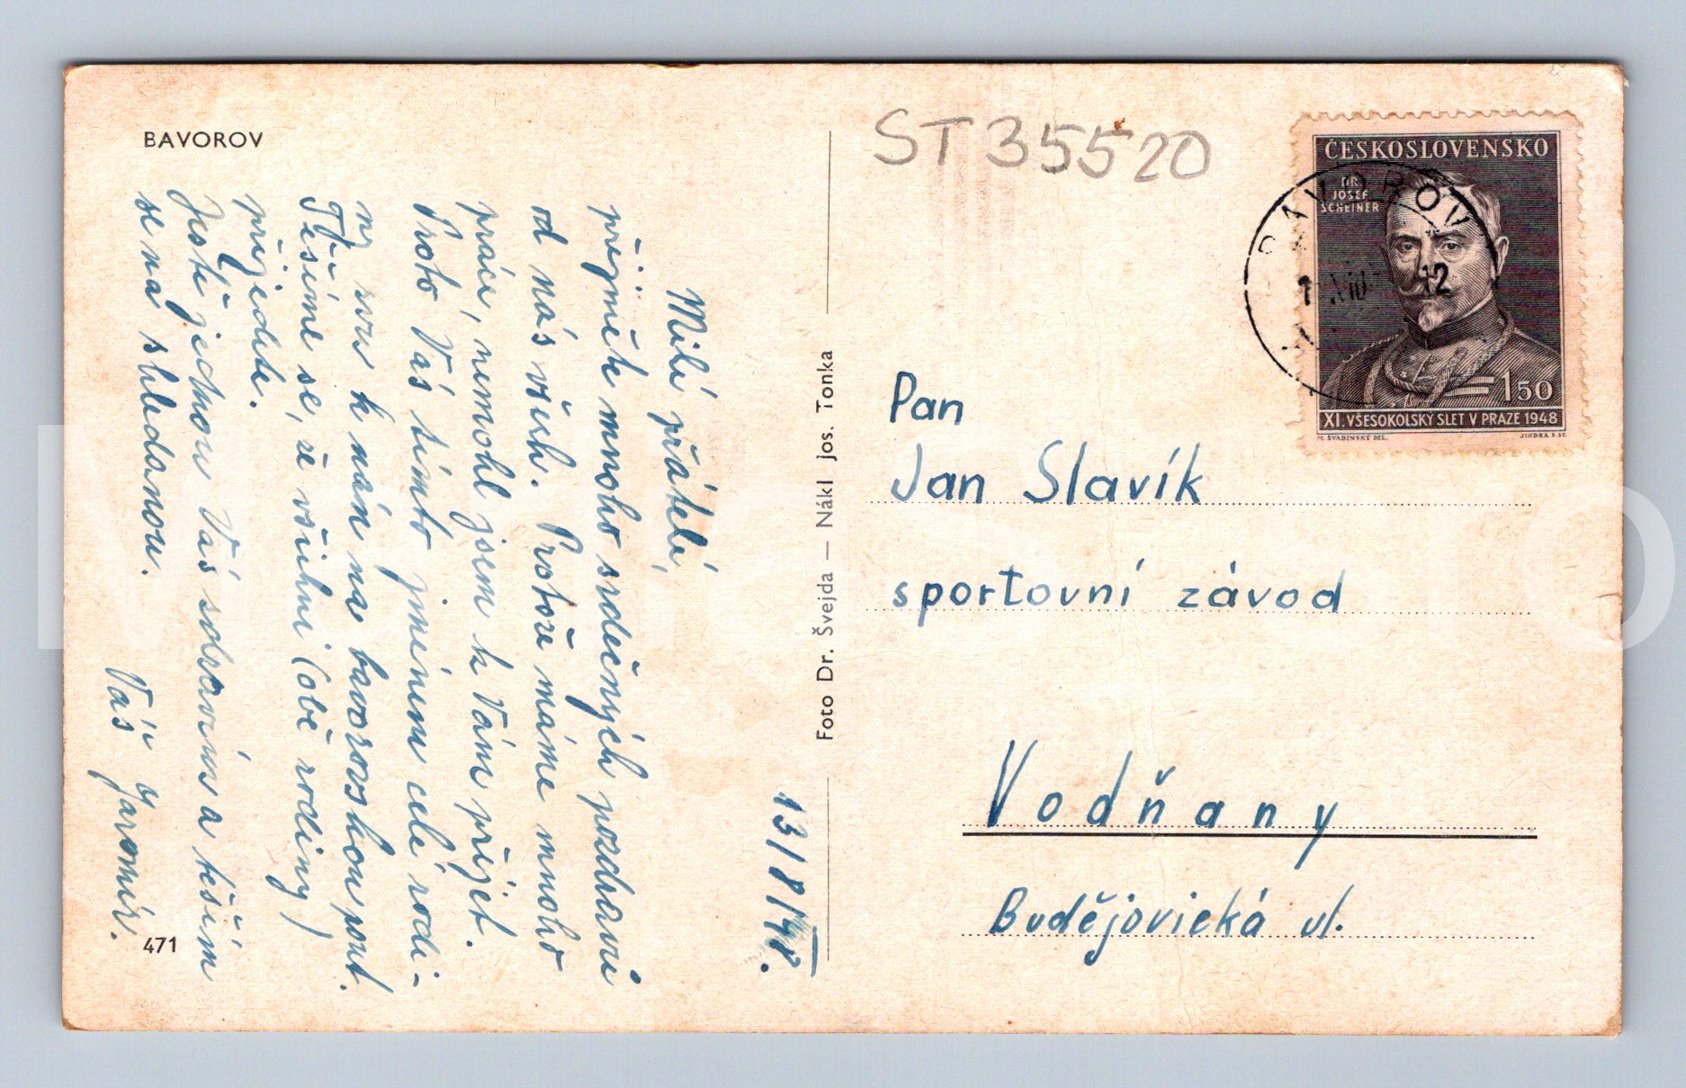 BAVOROV
Milí přátelé,
přijměte mnoho srdečných pozdravů
od nás všech. Protože máme mnoho
práce, nemohl jsem k Vám přijet.
Proto Vás tímto jménem celé rodi-
ny zvu k nám na bavorovskou pout.
Těšíme se, že všichni (obě rodiny)
přijedete.
Ještě jednou Vás zdravím a těším
se na shledanou.
Váš Jaromír.
471
13/8/48.
Foto Dr. Švejda — Nákl jos. Tonka
ST35520
ČESKOSLOVENSKO
DR
JOSEF
SCHEINER
1 50
XI. VŠESOKOLSKÝ SLET V PRAZE 1948
M. ŠVABINSKÝ DEL.
JINDRA S SC
BAVOROV
VIII 12
Pan
Jan Slavík
sportovní závod
Vodňany
Budějovická ul.